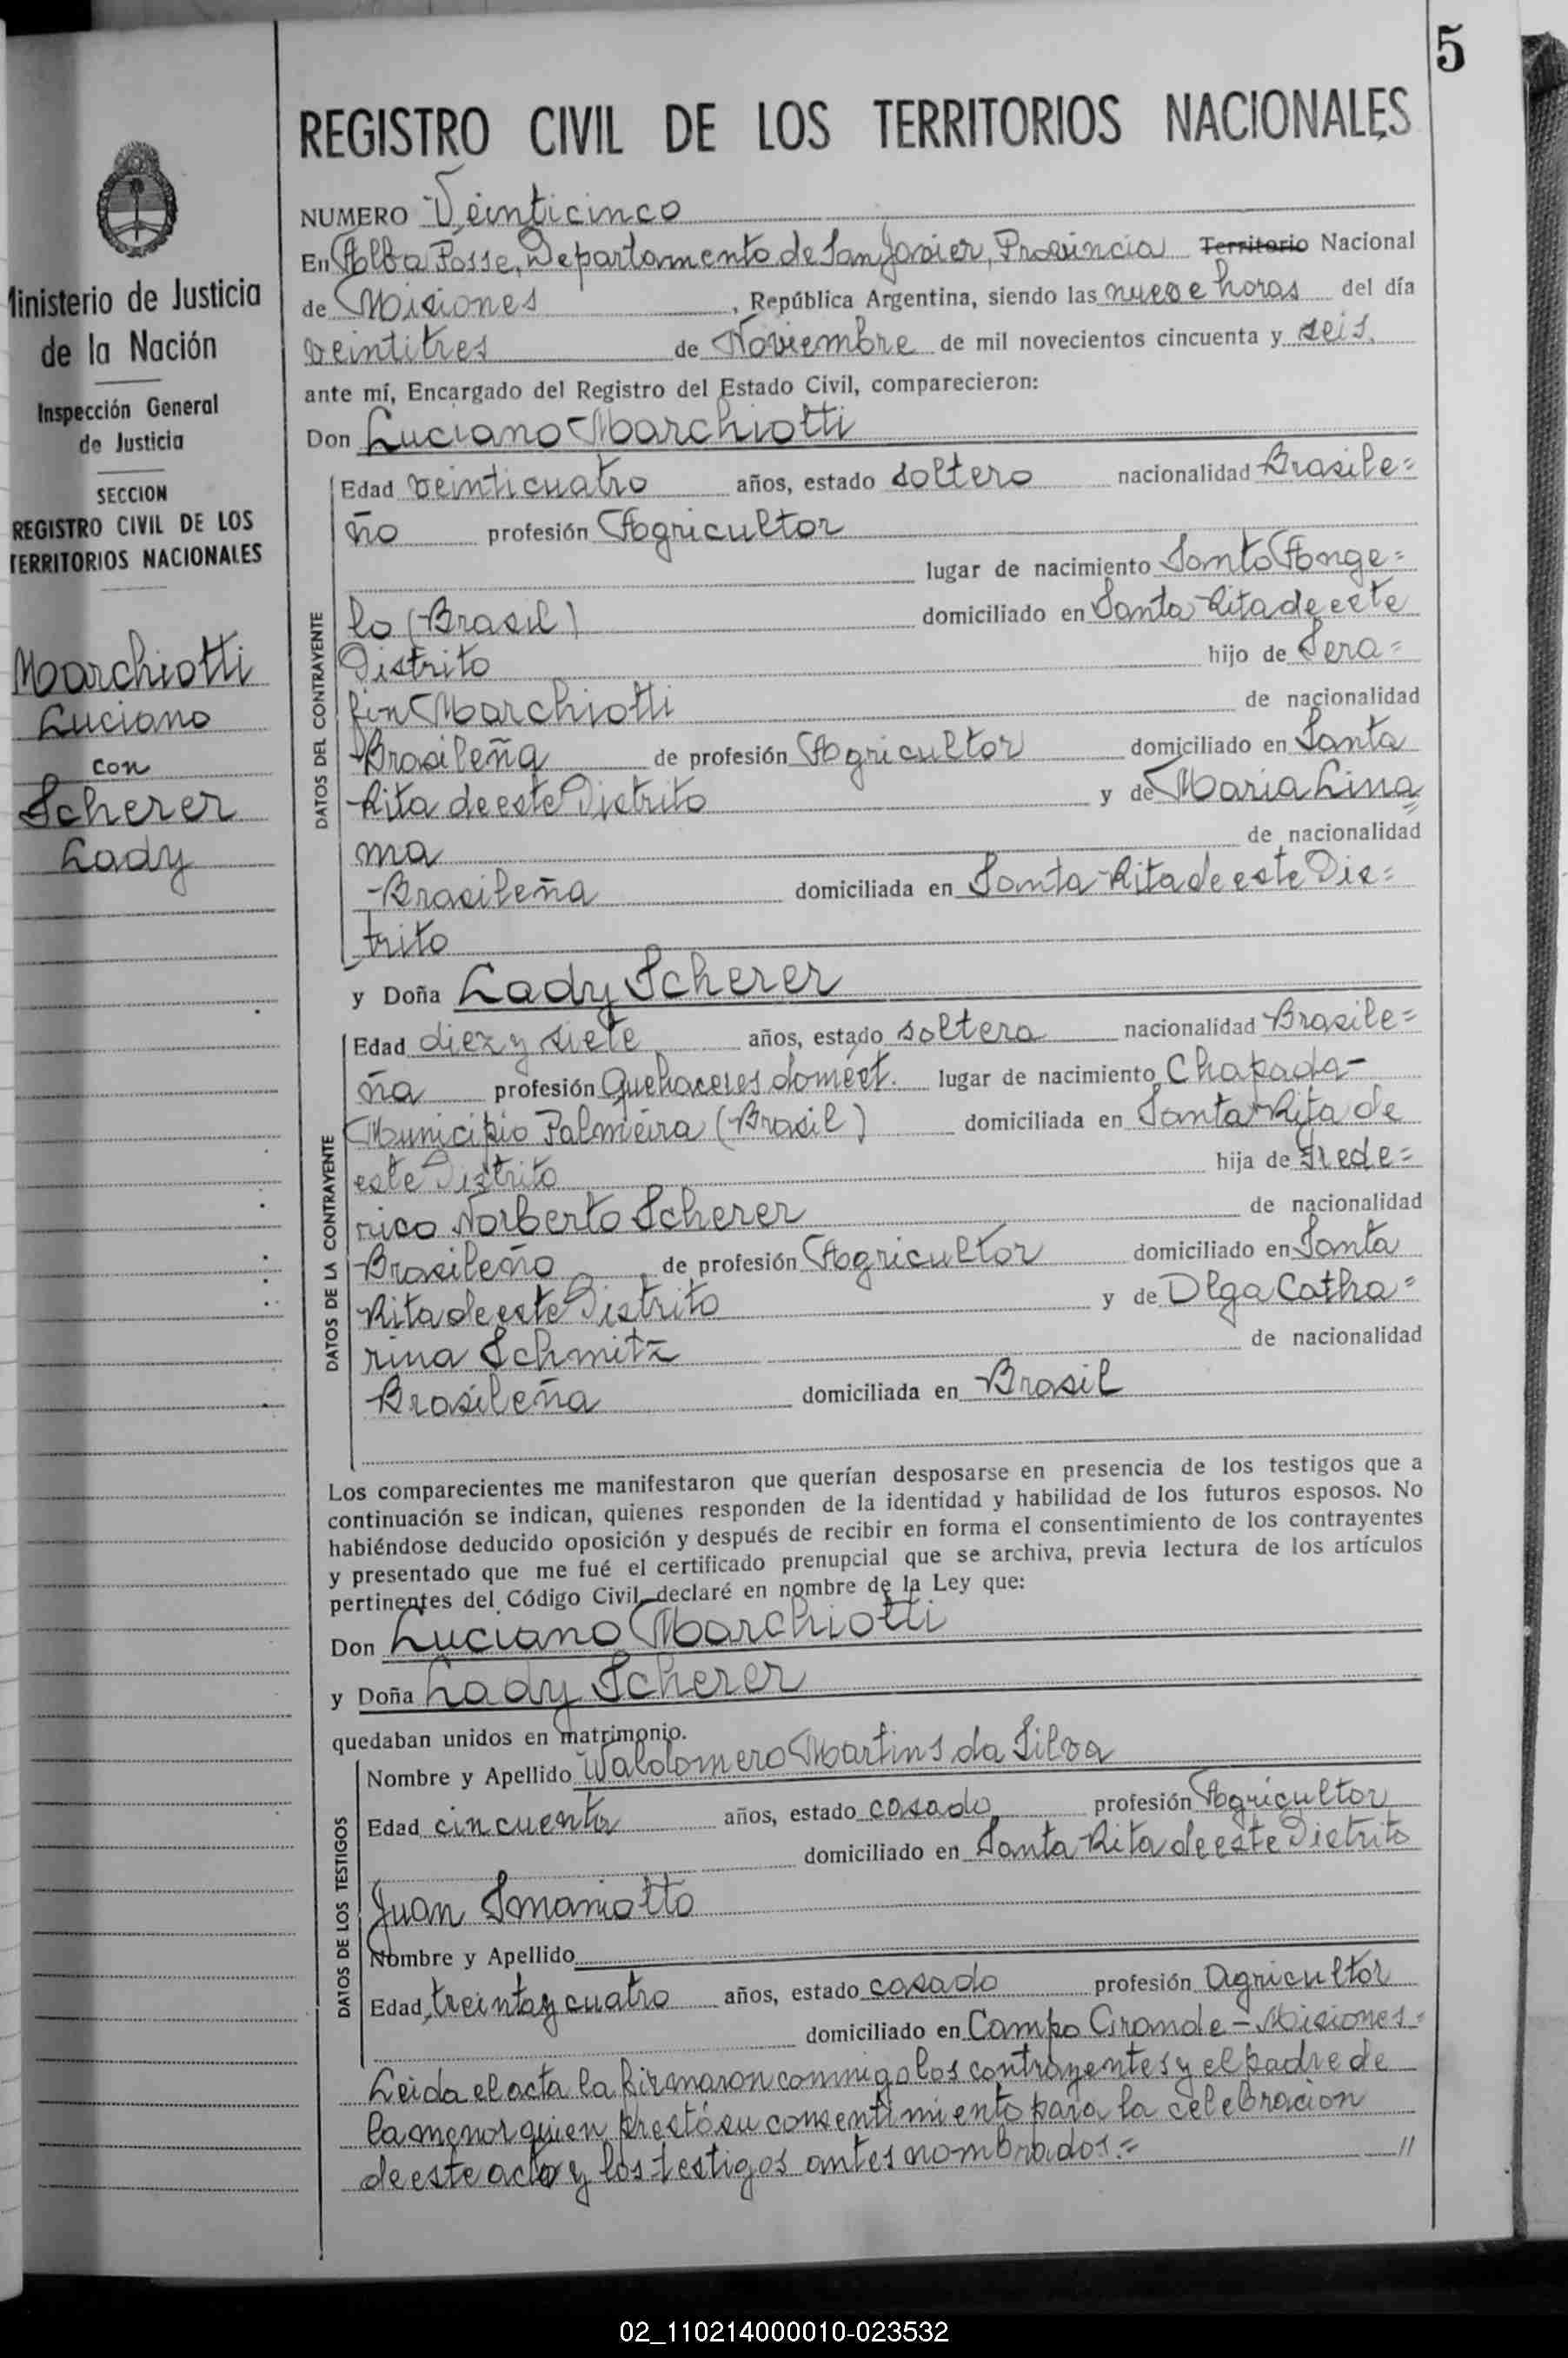 5
REGISTRO CIVIL DE LOS TERRITORIOS NACIONALES
Ministerio de Justicia
de la Nación
Inspección General
de Justicia
SECCION
REGISTRO CIVIL DE LOS
TERRITORIOS NACIONALES
Marchiotti
Luciano
con
Scherer
Lady
NUMERO Veinticinco
En Alba Posse, Departamento de San Javier, Provincia Territorio Nacional
de Misiones, República Argentina, siendo las nueve horas del día
veintitres de Noviembre de mil novecientos cincuenta y seis.
ante mí, Encargado del Registro del Estado Civil, comparecieron:
Don Luciano Marchiotti
DATOS DEL CONTRAYENTE
Edad veinticuatro años, estado soltero nacionalidad Brasile=
ño profesión Agricultor
lugar de nacimiento Santo Ange=
lo (Brasil) domiciliado en Santa Rita de este
Distrito hijo de Sera=
fin Marchiotti de nacionalidad
Brasileña de profesión Agricultor domiciliado en Santa
Rita de este Distrito y de Maria Lina=
ma de nacionalidad
Brasileña domiciliada en Santa Rita de este Dis=
trito
y Doña Lady Scherer
DATOS DE LA CONTRAYENTE
Edad diez y siete años, estado soltera nacionalidad Brasile=
ña profesión Quehaceres domést. lugar de nacimiento Chapada-
Municipio Palmeira (Brasil) domiciliada en Santa Rita de
este Distrito hija de Frede=
rico Norberto Scherer de nacionalidad
Brasileño de profesión Agricultor domiciliado en Santa
Rita de este Distrito y de Olga Catha=
rina Schmitz de nacionalidad
Brasileña domiciliada en Brasil
Los comparecientes me manifestaron que querían desposarse en presencia de los testigos que a
continuación se indican, quienes responden de la identidad y habilidad de los futuros esposos. No
habiéndose deducido oposición y después de recibir en forma el consentimiento de los contrayentes
y presentado que me fué el certificado prenupcial que se archiva, previa lectura de los artículos
pertinentes del Código Civil, declaré en nombre de la Ley que:
Don Luciano Marchiotti
y Doña Lady Scherer
quedaban unidos en matrimonio.
DATOS DE LOS TESTIGOS
Nombre y Apellido Waldomero Martins da Silva
Edad cincuenta años, estado casado profesión Agricultor
domiciliado en Santa Rita de este Distrito
Juan Smaniotto
Nombre y Apellido
Edad treinta y cuatro años, estado casado profesión agricultor
domiciliado en Campo Grande - Misiones=
Leida el acta la firmaron conmigo los contrayentes y el padre de
la menor quien prestó su consentimiento para la celebracion
de este acto y los testigos antes nombrados.= //
02_110214000010-023532